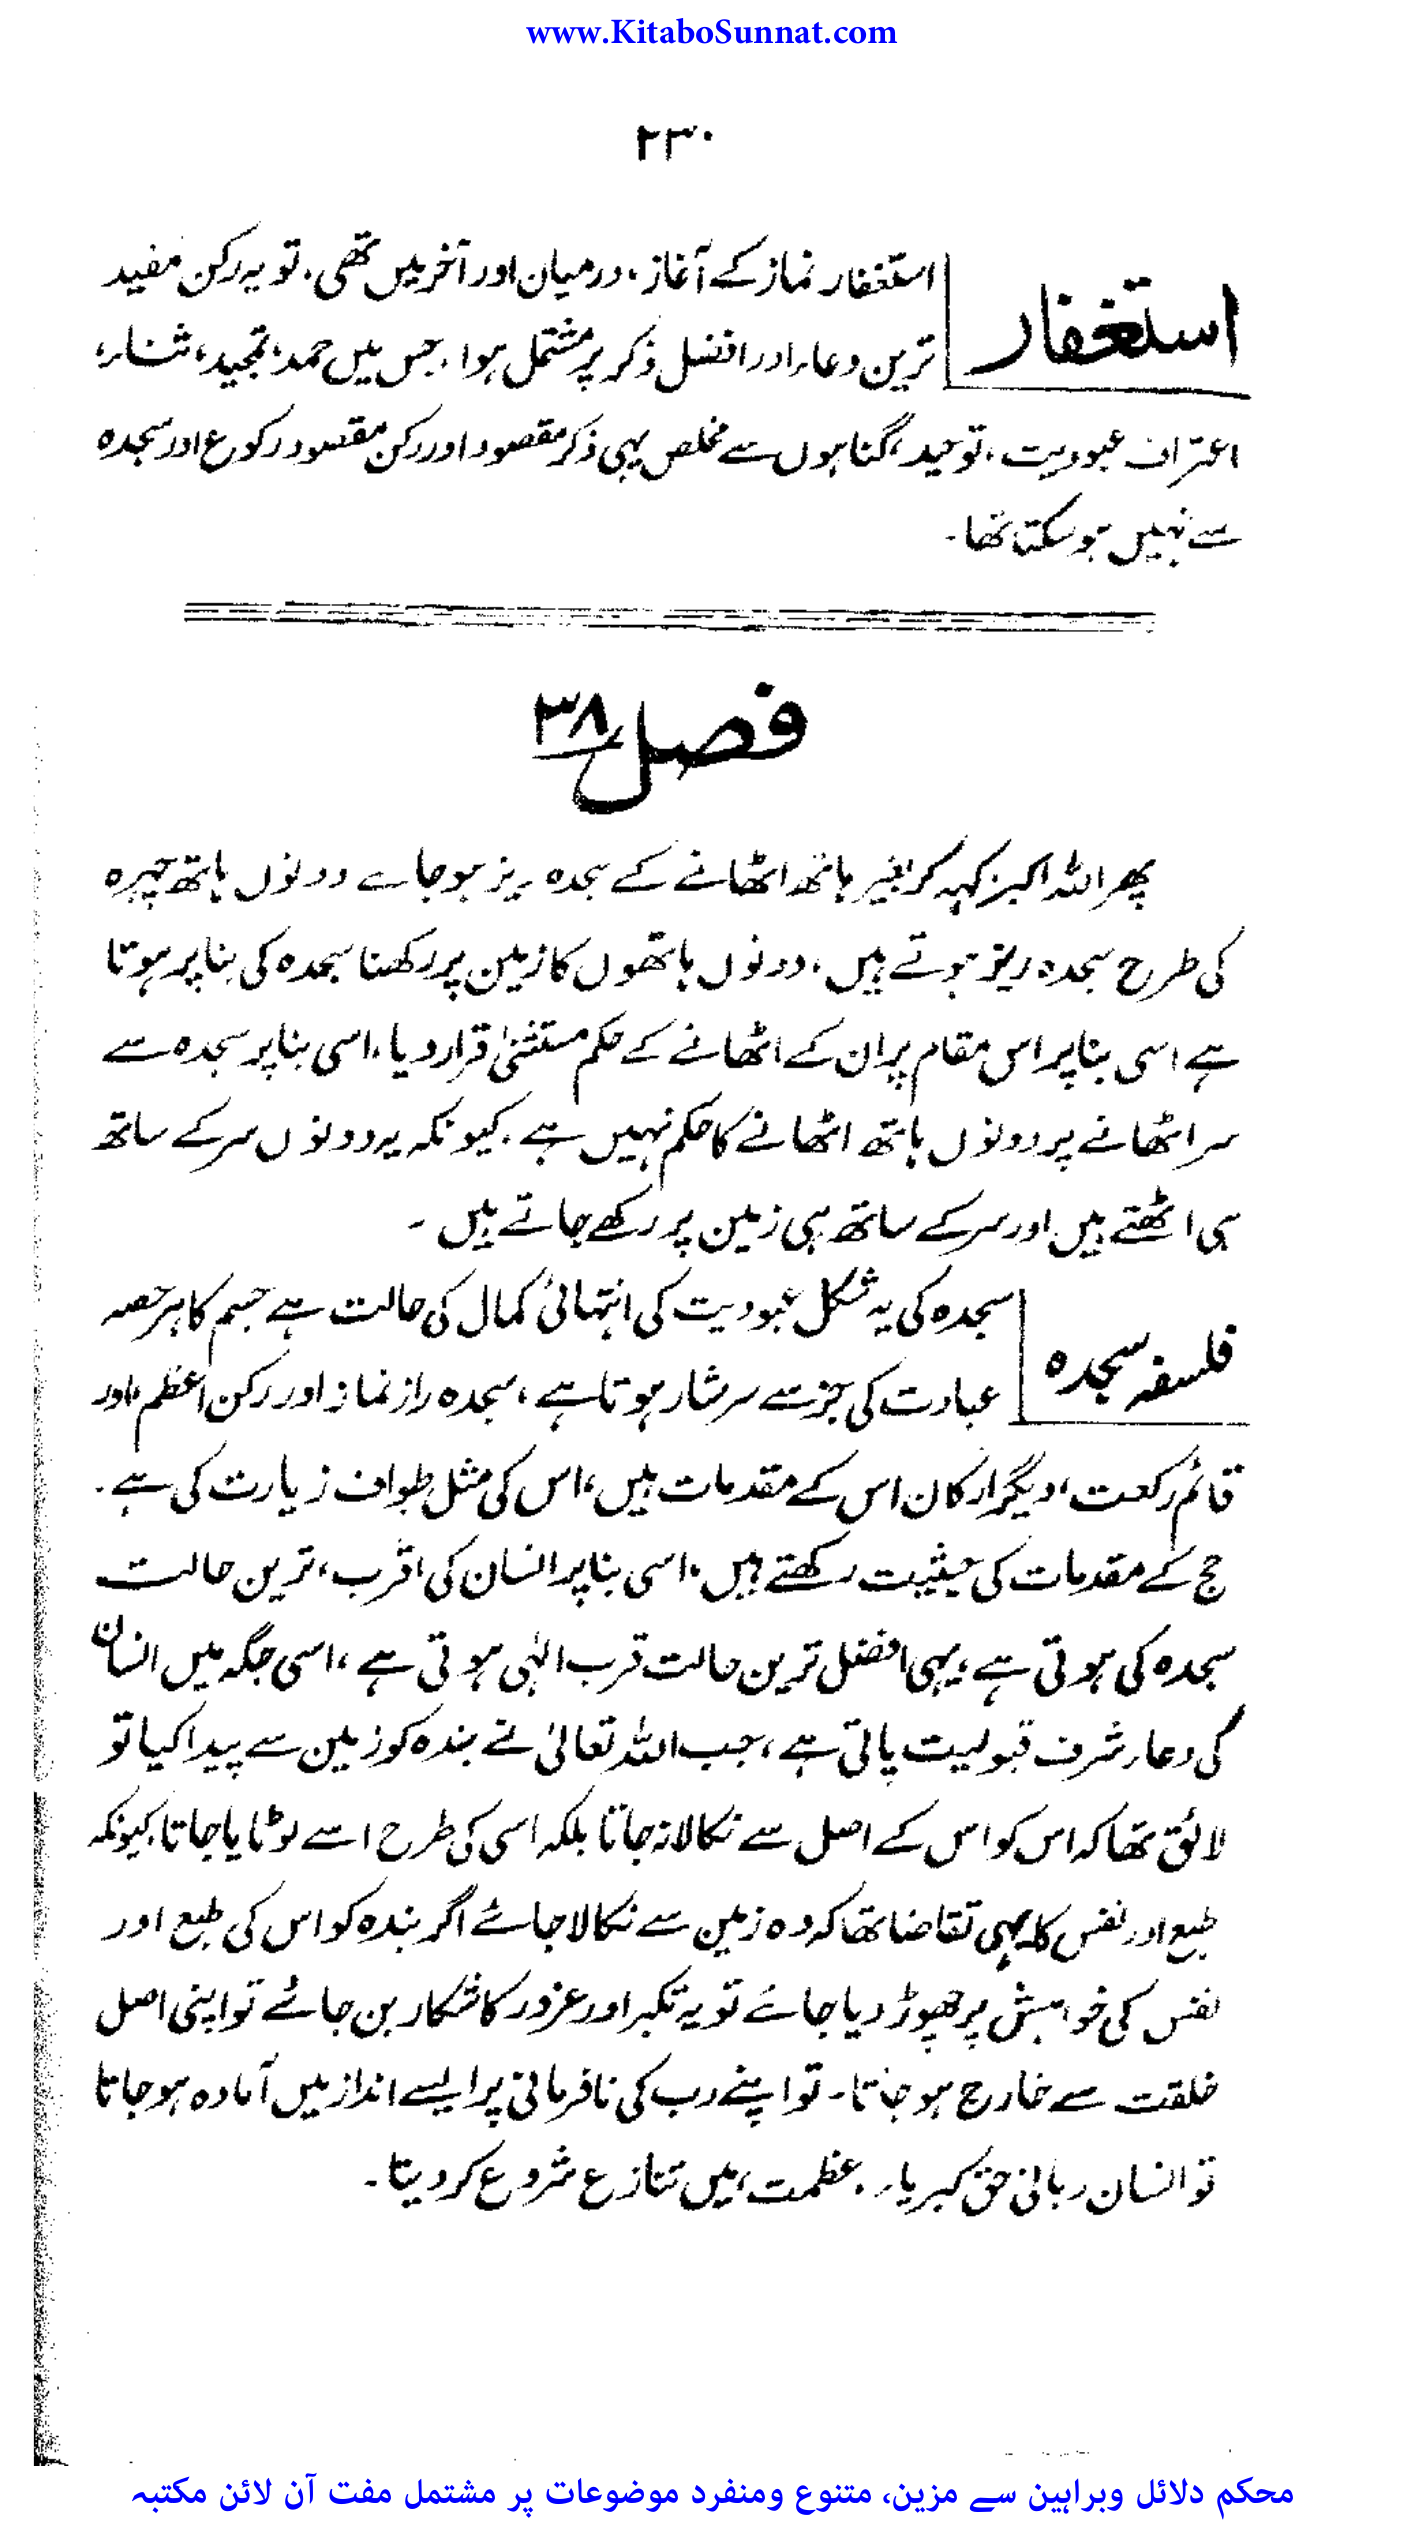 www.KitaboSunnat.com
۲۳۰
استغفار
استغفار نماز کے آغاز، درمیان اور آخر میں تھی۔ تو یہ رکن مفید
ترین دعاء اور افضل ذکر پر مشتمل ہوا۔ جس میں حمد، تمجید، ثناء،
اعتراف عبودیت، توحید، گناہوں سے مخلص یہی ذکر مقصود اور رکن مقصود رکوع اور سجدہ
سے نہیں ہو سکتا تھا۔
فصل ۳۸
پھر اللہ اکبر کہہ کر بغیر ہاتھ اٹھانے کے سجدہ ریز ہو جائے دونوں ہاتھ چہرہ
کی طرح سجدہ ریز ہوتے ہیں، دونوں ہاتھوں کا زمین پر رکھنا سجدہ کی بنا پر ہوتا
ہے اسی بنا پر اس مقام پر ان کے اٹھانے کے حکم مستثنیٰ قرار دیا، اسی بنا پر سجدہ سے
سر اٹھانے پر دونوں ہاتھ اٹھانے کا حکم نہیں ہے۔ کیونکہ یہ دونوں سر کے ساتھ
ہی اٹھتے ہیں اور سر کے ساتھ ہی زمین پر رکھے جاتے ہیں۔
فلسفہ سجدہ
سجدہ کی یہ شکل عبودیت کی انتہائی کمال کی حالت ہے جسم کا ہر حصہ
عبادت کی جز سے سرشار ہوتا ہے، سجدہ راز نماز اور رکن اعظم، اور
قائم رکعت، دیگر ارکان اس کے مقدمات ہیں، اس کی مثل طواف زیارت کی ہے۔
حج کے مقدمات کی حیثیت رکھتے ہیں، اسی بنا پر انسان کی اقرب، ترین حالت
سجدہ کی ہوتی ہے، یہی افضل ترین حالت قرب الٰہی ہوتی ہے، اسی جگہ میں انسان
کی دعاء شرف قبولیت پاتی ہے، جب اللہ تعالیٰ نے بندہ کو زمین سے پیدا کیا تو
لائق تھا کہ اس کو اس کے اصل سے نکالا نہ جاتا بلکہ اسی کی طرح اسے لوٹا یا جاتا، کیونکہ
طبع اور نفس کا یہی تقاضا تھا کہ وہ زمین سے نکالا جائے اگر بندہ کو اس کی طبع اور
نفس کی خواہش پر چھوڑ دیا جائے تو یہ تکبر اور غرور کا شکار بن جائے تو اپنی اصل
خلقت سے خارج ہو جاتا۔ تو اپنے رب کی نافرمانی پر ایسے انداز میں آمادہ ہو جاتا
تو انسان ربانی حق کبریاء۔ عظمت، میں تنازع شروع کر دیتا۔
محکم دلائل وبراہین سے مزین، متنوع ومنفرد موضوعات پر مشتمل مفت آن لائن مکتبہ